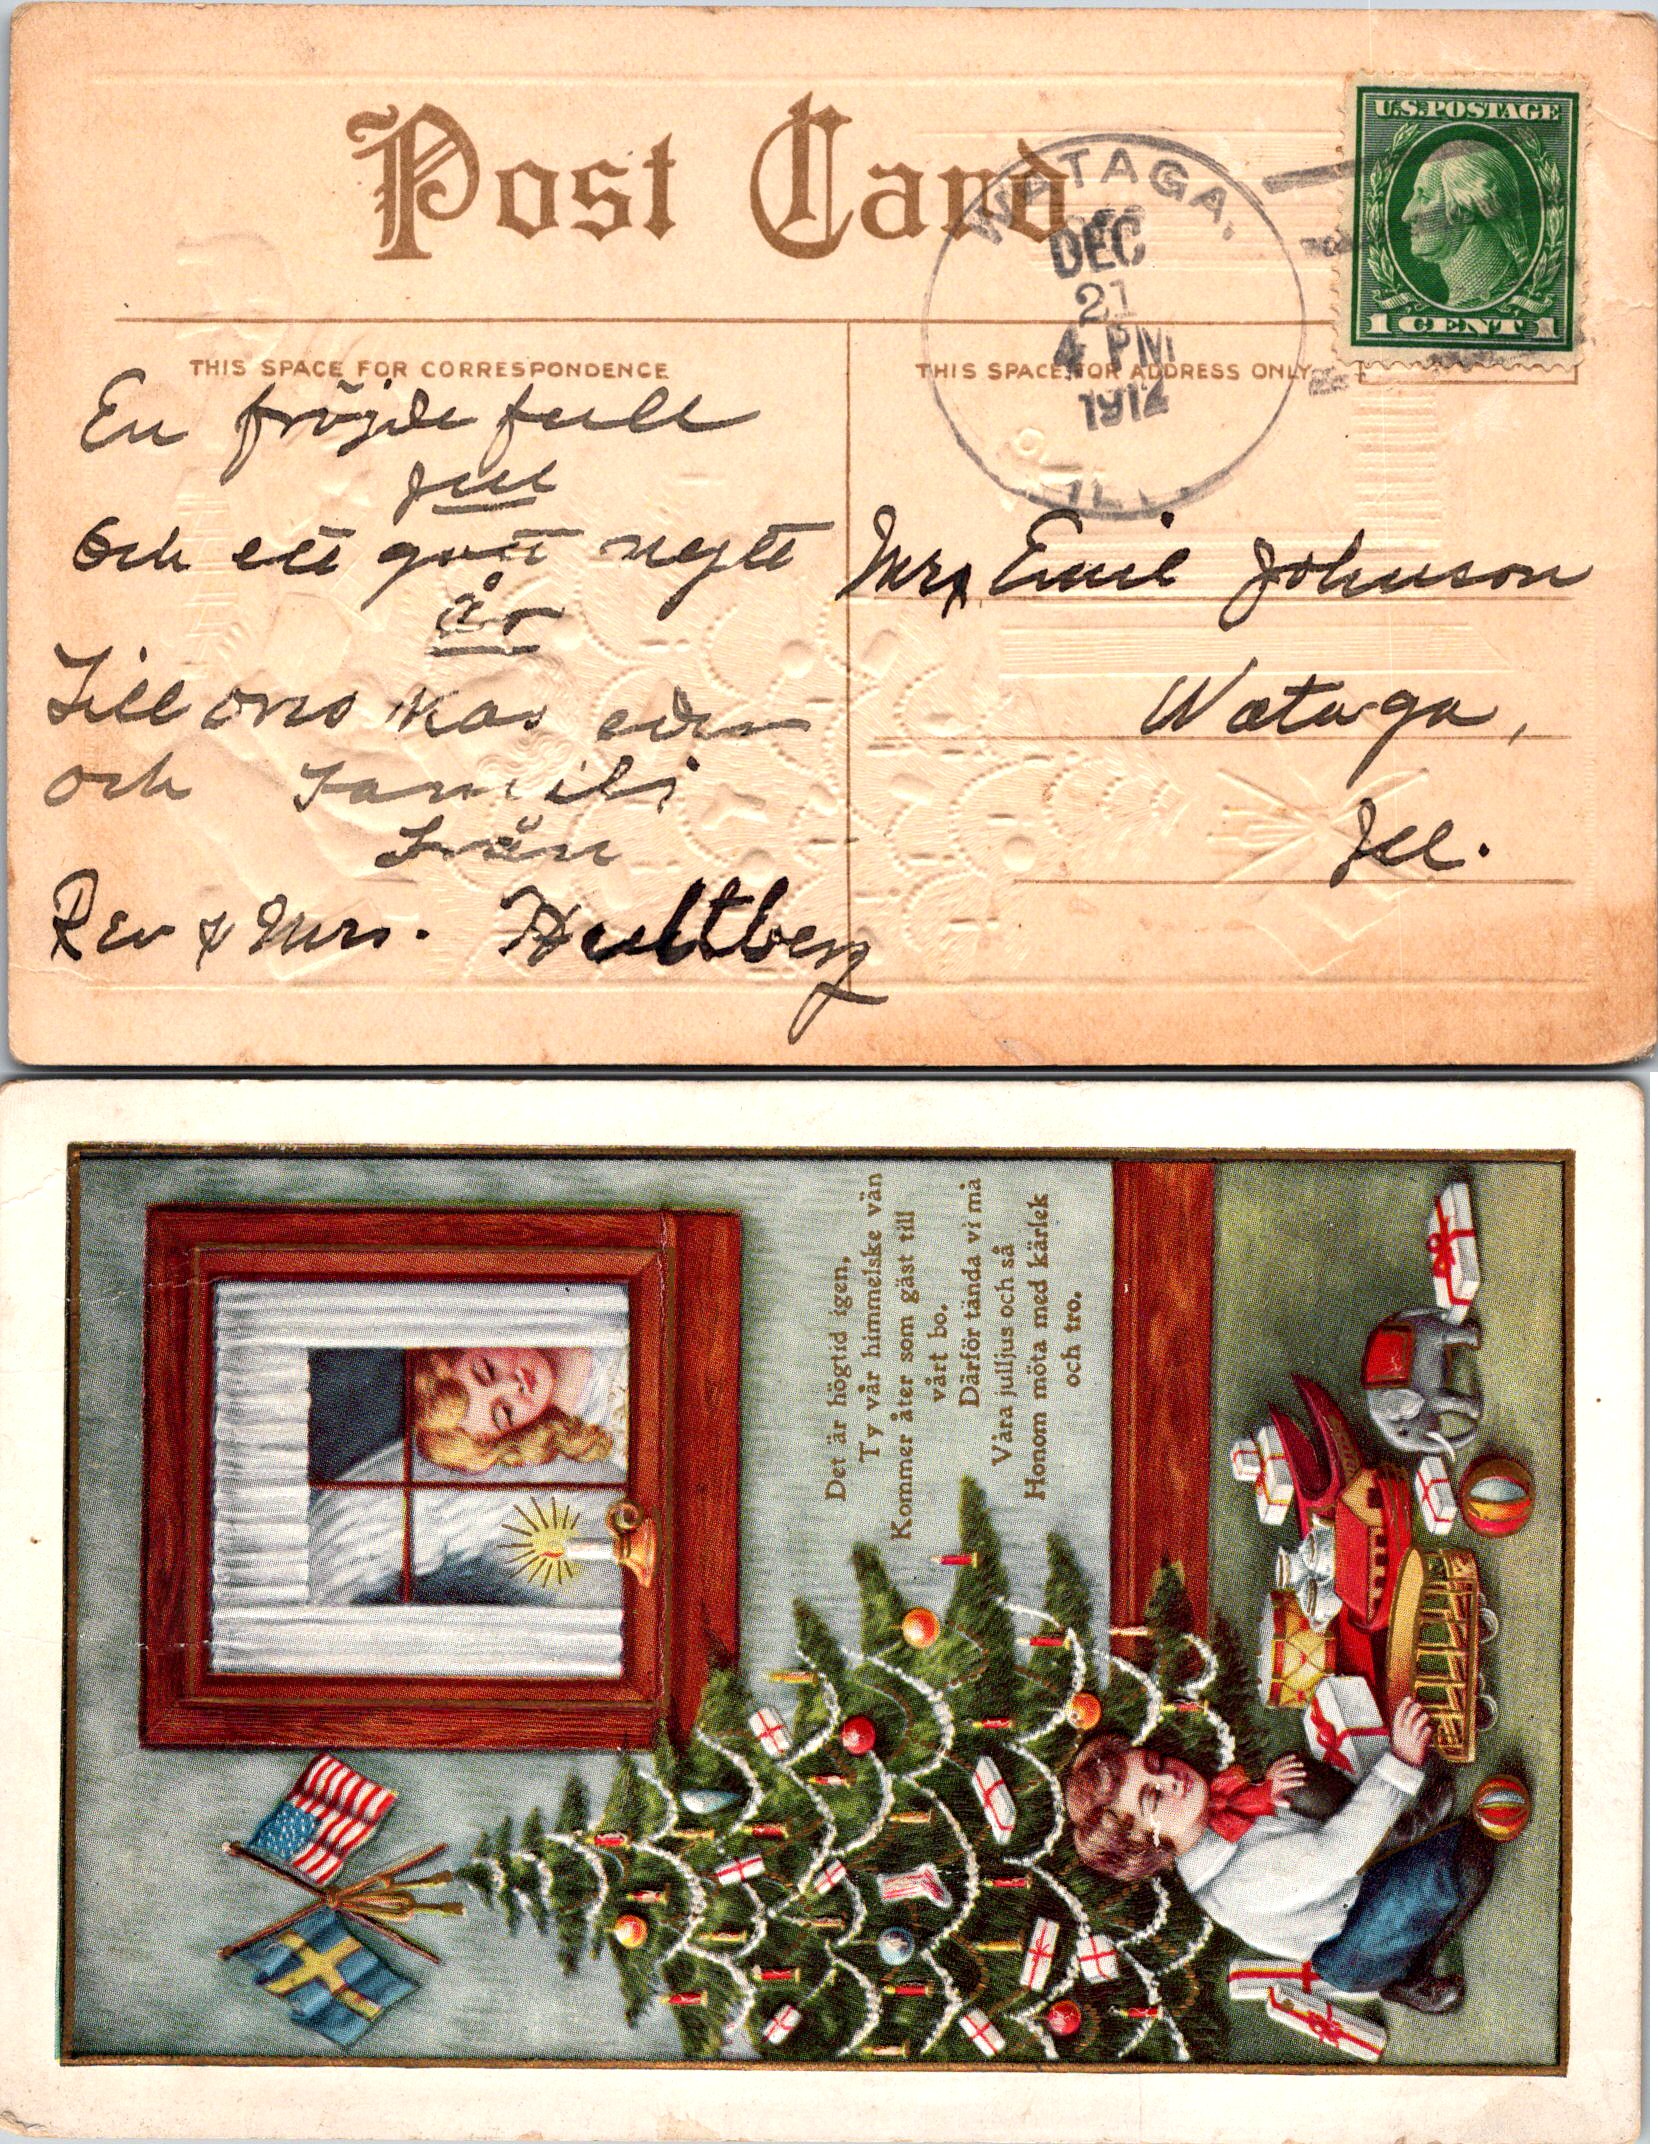 Post Card
WATAGA,
DEC
21
4 PM
1912
ILL.
U.S. POSTAGE
1 CENT 1
THIS SPACE FOR CORRESPONDENCE
THIS SPACE FOR ADDRESS ONLY
En fröjde full
jul
Och ett gott nytt
år
Till öns kas eder
och Famili
Från
Rev & Mrs. Hultberg
Mrs Emil Johnson
Wataga,
Ill.
Det är högtid igen,
Ty vår himmelske vän
Kommer åter som gäst till
vårt bo.
Därför tända vi må
Våra julljus och så
Honom möta med kärlek
och tro.